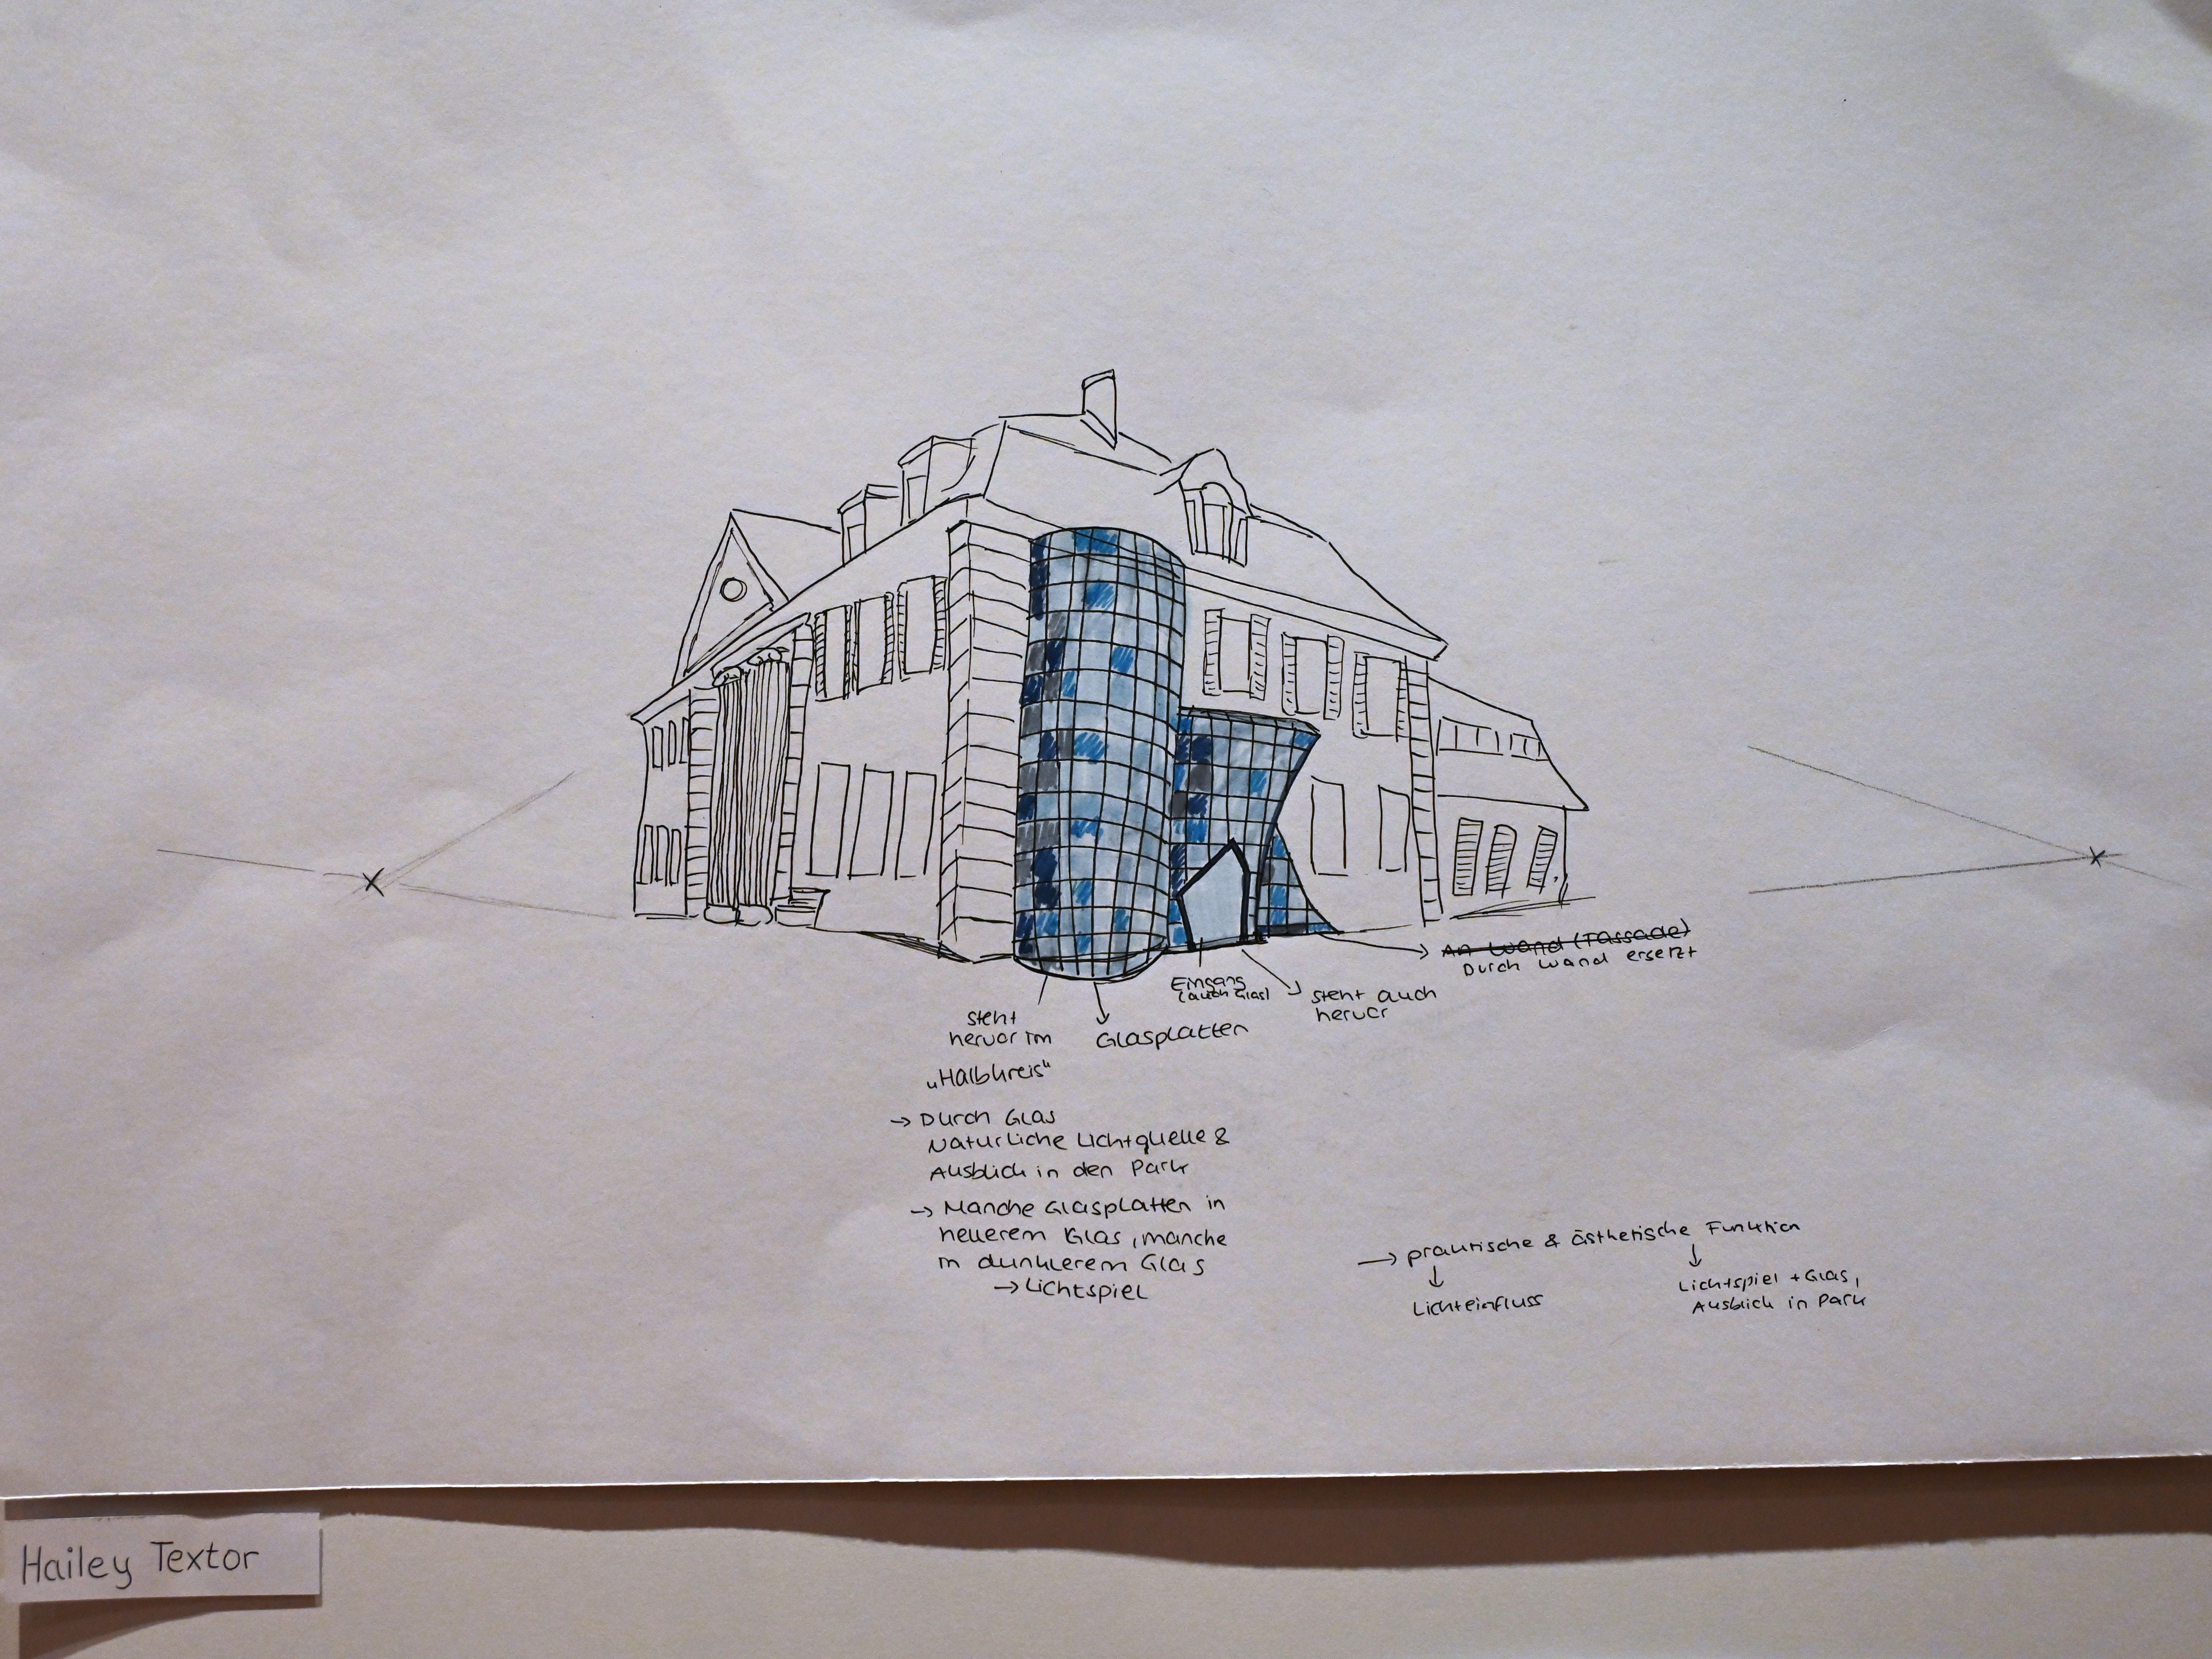 An Wand (Fassade)
Durch Wand ersetzt
Eingang
(auch Glas)
steht auch
hervor
steht
hervor im
„Halbkreis“
Glasplatten
→ Durch Glas
Natürliche Lichtquelle &
Ausblick in den Park
→ Manche Glasplatten in
hellerem Glas, manche
in dunklerem Glas
→ Lichtspiel
→ praktische & ästhetische Funktion
Lichteinfluss
Lichtspiel + Glas,
Ausblick in Park
Hailey Textor